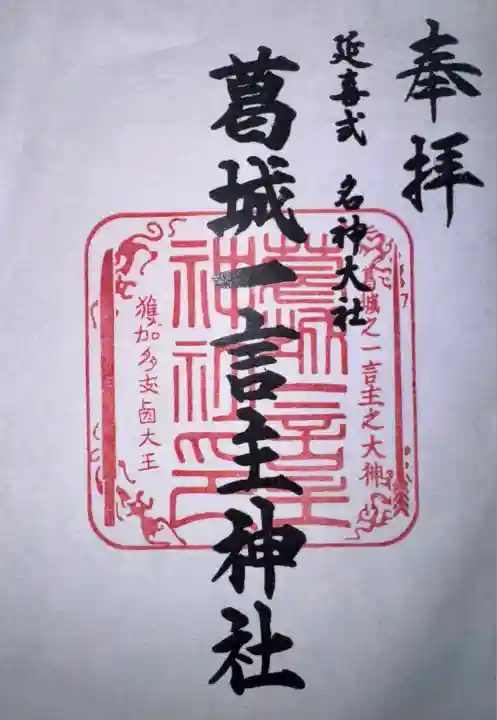 奉拝
延喜式 名神大社
葛城一言主神社
葛城之一言主之大神
葛城一言主
神社之印
獲加多支鹵大王